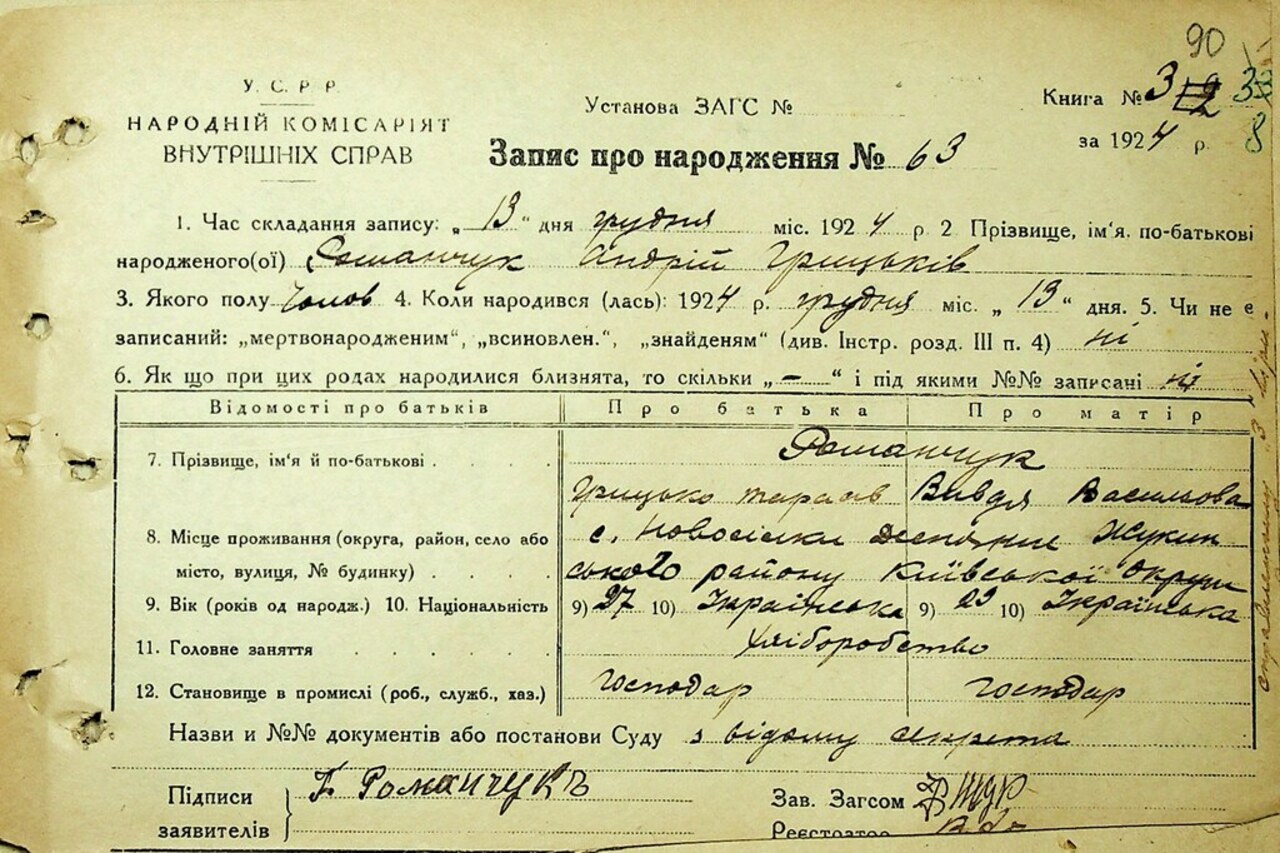 90
У. С. Р Р.
НАРОДНІЙ КОМІСАРІЯТ
ВНУТРІШНІХ СПРАВ
Установа ЗАГС №
Книга № 3 33
за 1924 р. 8
Запис про народження № 63
1. Час складання запису: „ 13 " дня грудня міс. 1924 р 2 Прізвище, ім'я. по-батькові
народженого(ої) Романчук Андрій Грицьків
3. Якого полу Чолов 4. Коли народився (лась): 1924 р. грудня міс. „ 13 " дня. 5. Чи не є
записаний: „мертвонародженим", „всиновлен.", „знайденям" (див. Інстр. розд. III п. 4) ні
6. Як що при цих родах народилися близнята, то скільки „ – " і під якими №№ записані ні
Відомості про батьків Про батька Про матір
7. Прізвище, ім'я й по-батькові . . . . Романчук
Грицько тарасів Вивдя Васильова
8. Місце проживання (округа, район, село або с. Новосілки Жукин
місто, вулиця, № будинку) . . . . ського району Київської Округи
9. Вік (років од народж.) 10. Національність 9) 27 10) Українська 9) 23 10) Українська
11. Головне заняття . . . . . Хліборобство
12. Становище в промислі (роб., служб., хаз.) господар господар
Назви и №№ документів або постанови Суду з відому секрета
Підписи Г. Романчукъ Зав. Загсом Щур
заявителів Реєстратор